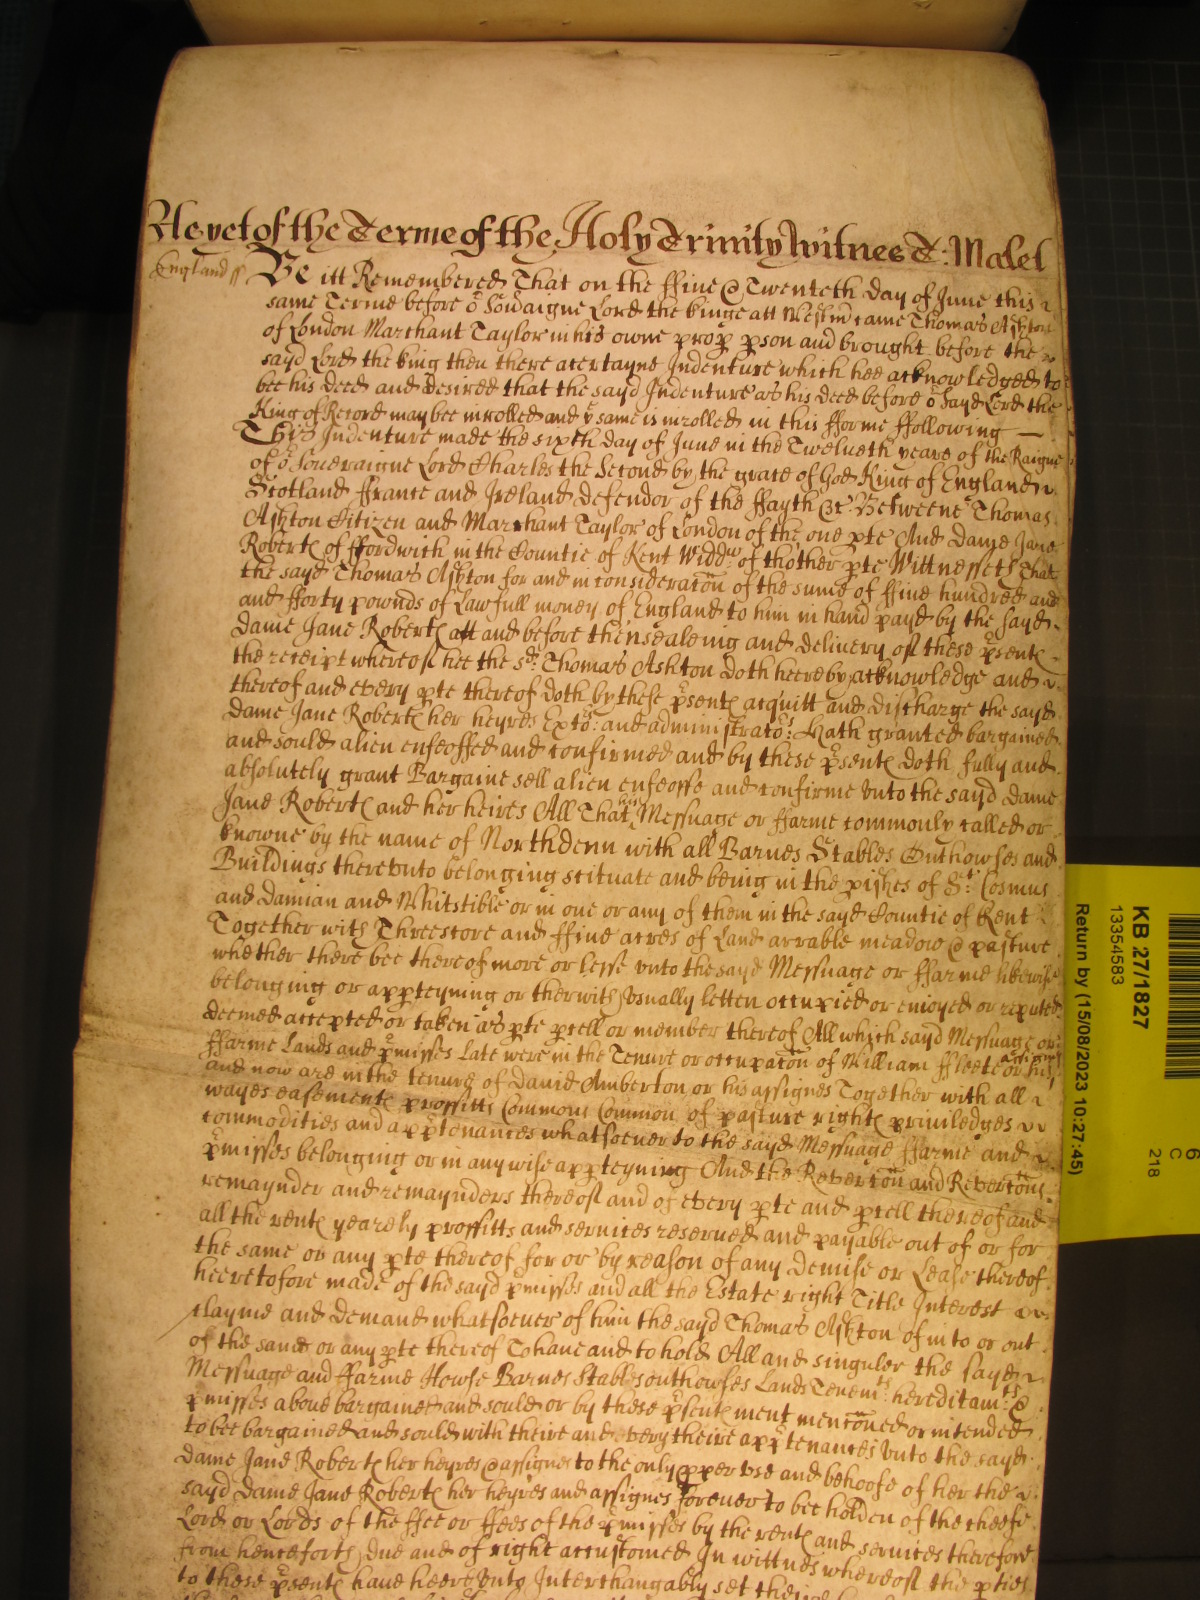 As yet of the Terme of the Holy Trinity Witnes T: Malet
England ss Be itt Remembered That on the ffive & Twenteth day of June this
same Terme before oʳ Sovʳaigne Lord the Kinge att Westmʳ came Thomas Ashton
of London Marchant Taylor in his owne prop pson and brought before the
sayd Lord the King then there a certayne Indenture which hee acknowledged to
bee his deed and desired that the sayd Indenture as his deed before oʳ Sayd Lord the
King of Record may bee inrolled and yᵉ same is inrolled in this fforme ffollowing —
This Indenture made the sixth day of June in the Twelueth yeare of the Raigne
of oʳ Soueraigne Lord Charles the Second by the grace of God King of England
Scotland ffrance and Ireland defendor of the ffayth &c: Betweene Thomas
Ashton Citizen and Marchant Taylor of London of the one pte And Dame Jane
Robertes of ffordwich in the Countie of Kent Widdʷ of thother pte Wittnesseth That
the sayd Thomas Ashton for and in consideracon of the sume of ffive hundred and
and fforty pownds of Lawfull money of England to him in hand payd by the sayd
Dame Jane Robertes att and before thensealeing and delivery of these psentes
the receipt whereof hee the sᵈ: Thomas Ashton doth heereby acknowledge and
thereof and every pte thereof doth by these psentes acquitt and discharge the sayd
Dame Jane Robertes her heyres Extoʳˢ: and administratoʳˢ: Hath granted bargained
and sould alien enfeoffed and confirmed and by these psentes doth fully and
absolutely grant Bargaine sell alien enfeoffe and confirme vnto the sayd Dame
Jane Robertes and her heires All That his Messuage or ffarme commonly called or
knowne by the name of Northdenn with all Barnes Stables Outhowses and
Buildings therevnto belonging scituate and being in the pishes of Sᵗ: Cosmus
and Damian and Whitstible or in one or any of them in the sayd Countie of Kent
Together with Threescore and ffive acres of Land arrable meadow & pasture
whether there bee thereof more or lesse vnto the sayd Messuage or ffarme likewise
belonging or appteyning or therwith vsually letten occupied or enioyed or reputed
deemed accepted or taken as pte pcell or member thereof All which sayd Messuage or
ffarme Lands and pmisses Late were in the Tenure or occupacon of William ffleete or his assignes
and now are in the tenure of David Amberton or his assignes Together with all
wayes easementes proffitts Commons Common of pasture rightes priviledges
commodities and apptenances whatsoeuer to the sayd Messuage ffarme and
pmisses belonging or in any wise appteyning And the Revercon and Revercons
remaynder and remaynders thereof and of every pte and pcell thereof and
all the rentes yearely proffitts and services reserued and payable out of or for
the same or any pte thereof for or by reason of any Demise or Lease thereof
heeretofore made of the sayd pmisses and all the Estate right Title Interest
clayme and demand whatsoeuer of him the sayd Thomas Ashton of in to or out
of the same or any pte thereof To haue and to hold All and singuler the sayd
Messuage and ffarme Howse Barnes Stables outhowses Lands Tenemᵗˢ: hereditamᵗˢ: &
pmisses aboue bargained and sould or by these psentes ment menconed or intended
to bee bargained and sould with theire and every theire apptenances vnto the sayd
Dame Jane Robertes her heyres & assignes to the only pper vse and behoofe of her the
sayd Dame Jane Robertes her heyres and assignes forever to bee holden of the cheefe
Lord or Lords of the ffee or ffees of the pmisses by the rentes and services therefore
from henceforth due and of right accustomed In wittnes whereof the pties
to these psentes haue heere vnto Interchangably set their
KB 27/1827
13354583
Return by (15/08/2023 10:27:45)
6
C
218